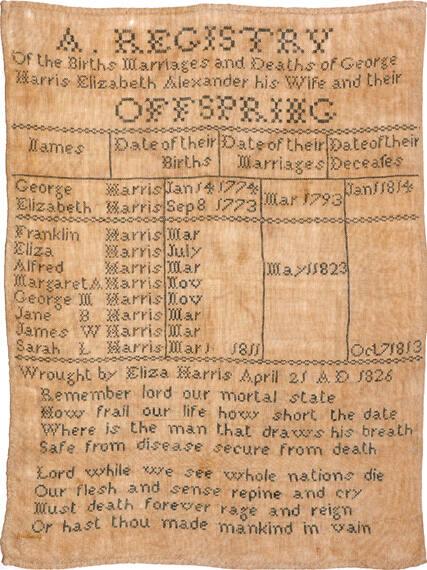 A. REGISTRY
Of the Births Marriages and Deaths of George
Harris Elizabeth Alexander his Wife and their
OFFSPRING
Names Date of their Births Date of their Marriages Date of their Deceases
George Harris Jan 14 1774 Mar 1793 Jan 11 1814
Elizabeth Harris Sep 8 1773
Franklin Harris Mar
Eliza Harris July
Alfred Harris Mar May 11 1823
Margaret A Harris Nov
George M Harris Nov
Jane B Harris Mar
James W Harris Mar
Sarah L Harris Mar 1 1811 Oct 7 1813
Wrought by Eliza Harris April 21 A D 1826
Remember lord our mortal state
How frail our life how short the date
Where is the man that draws his breath
Safe from disease secure from death
Lord while we see whole nations die
Our flesh and sense repine and cry
Must death forever rage and reign
Or hast thou made mankind in vain